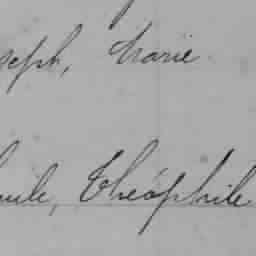 seph, Marie
ile, Théophile